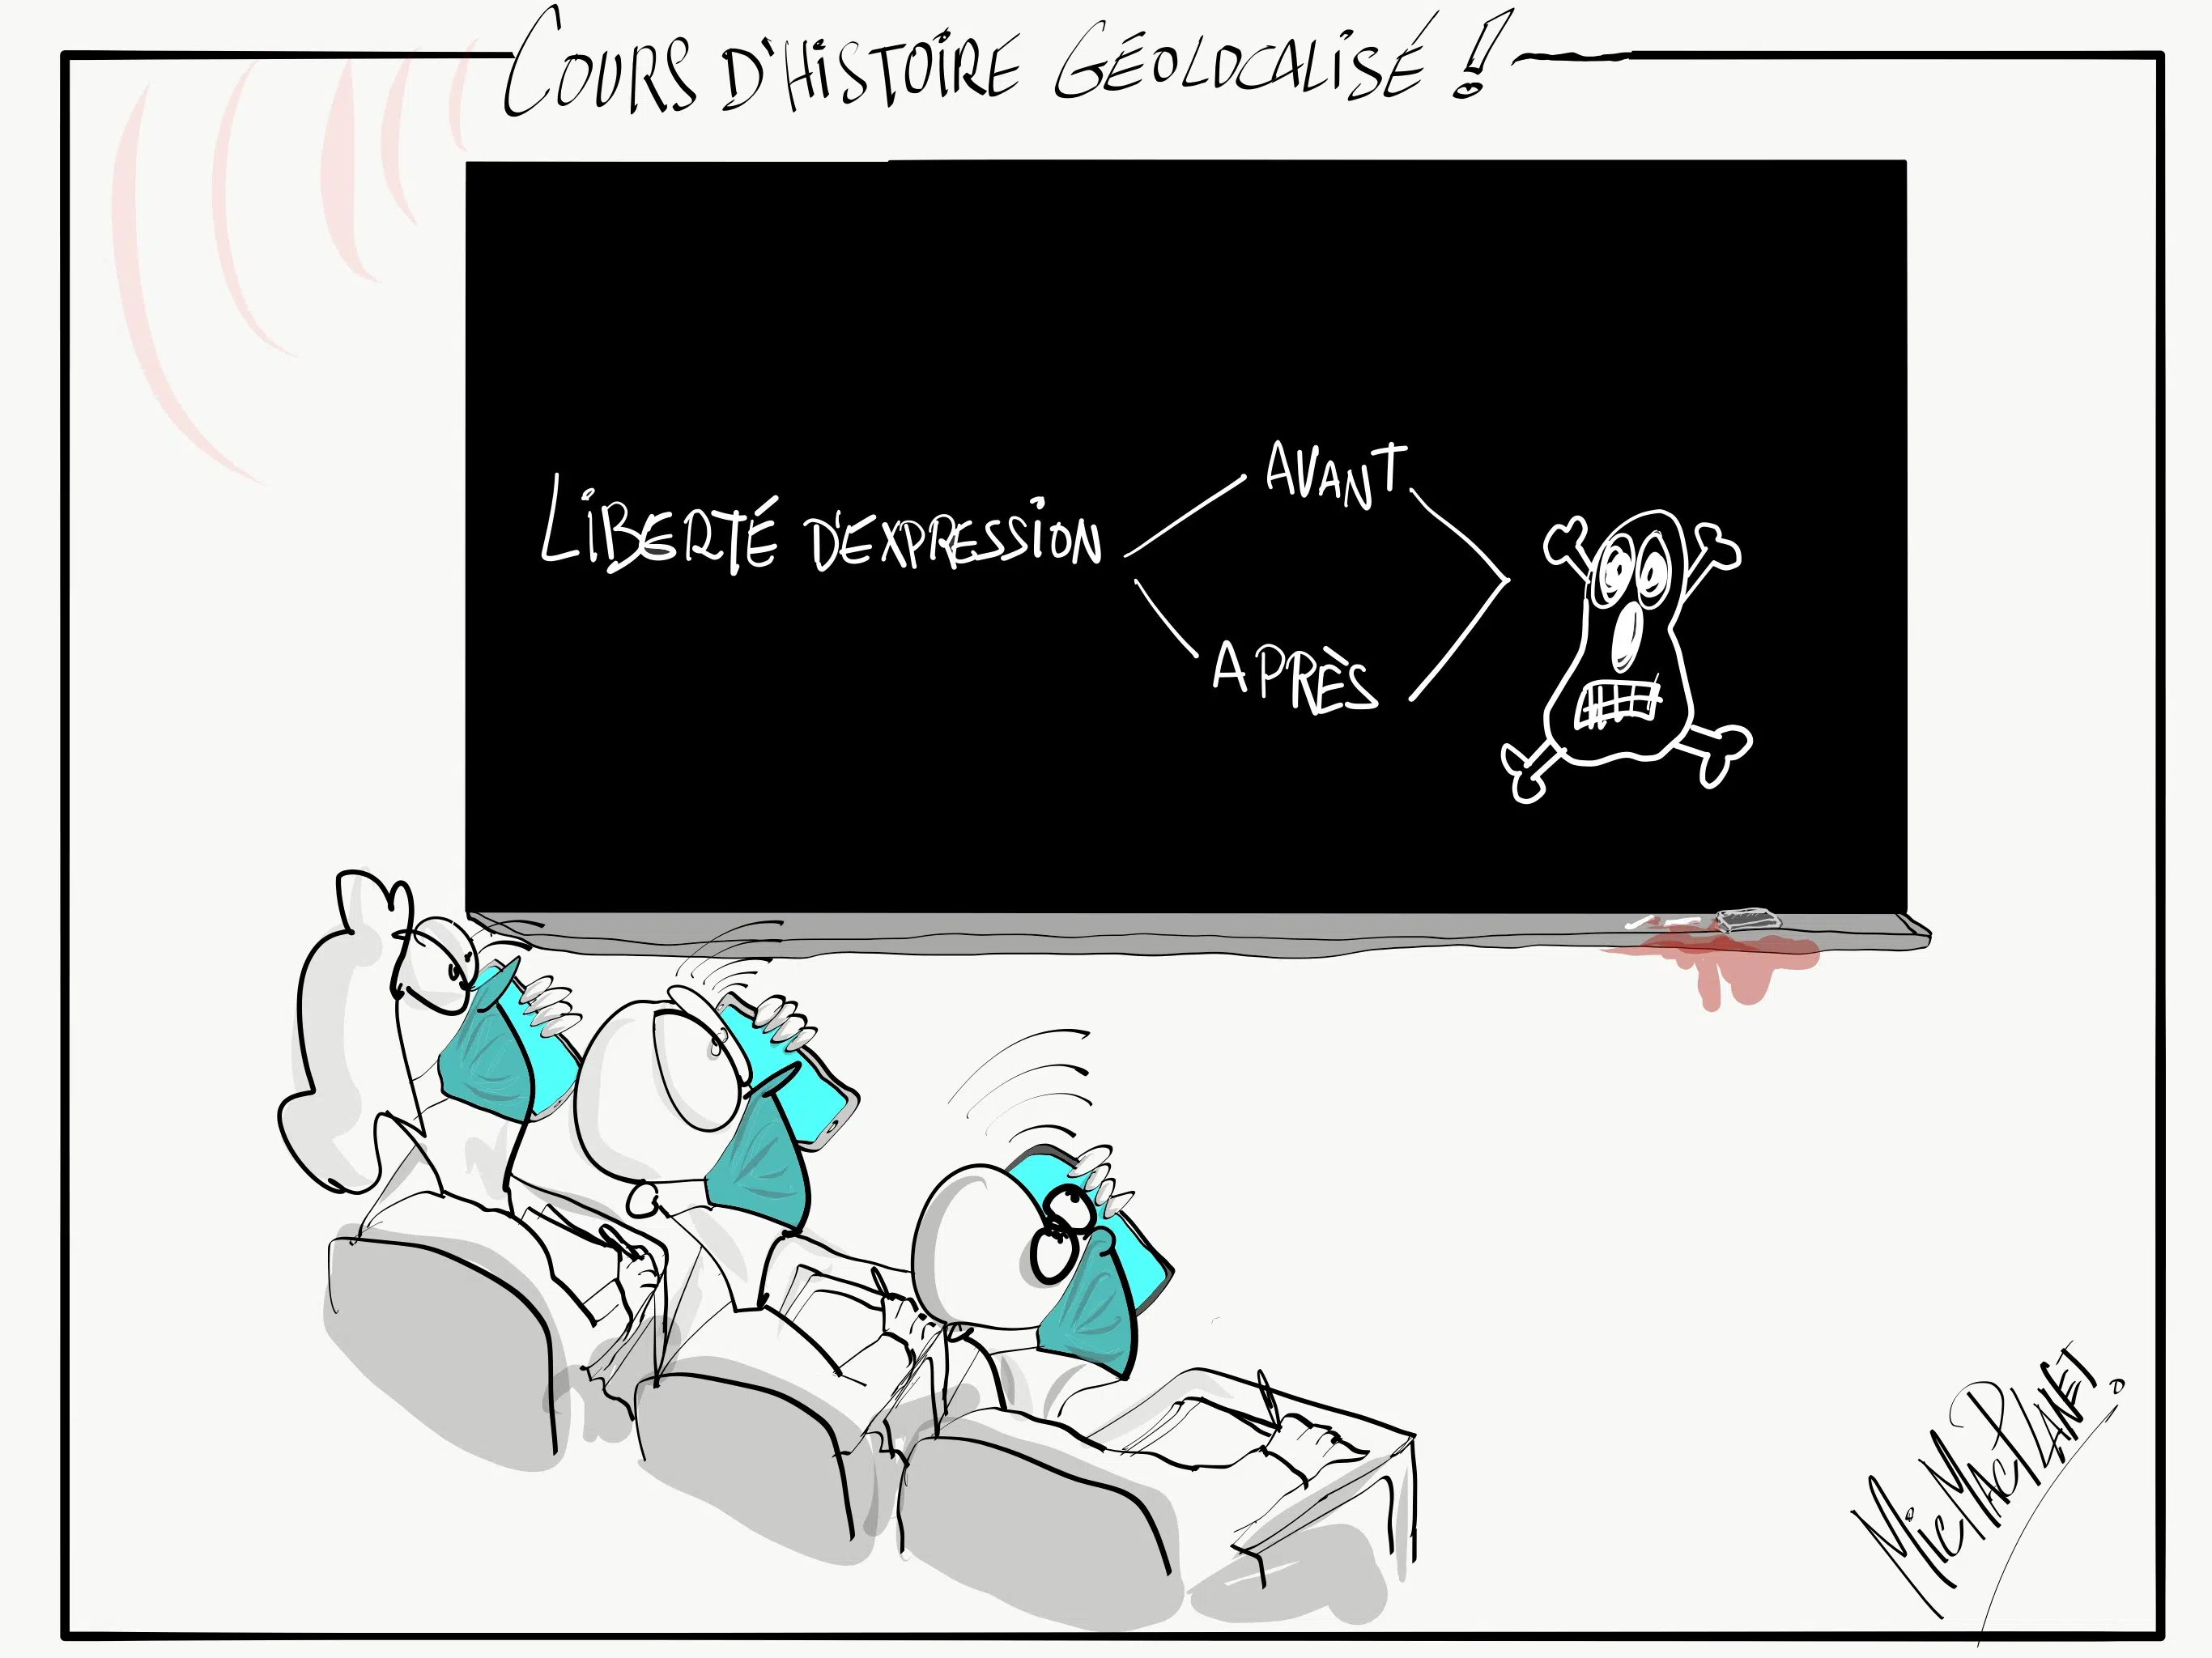 COURS D'HISTOIRE GÉOLOCALISÉ !!
LIBERTÉ D'EXPRESSION
AVANT
APRÈS
MICMACPLANET.